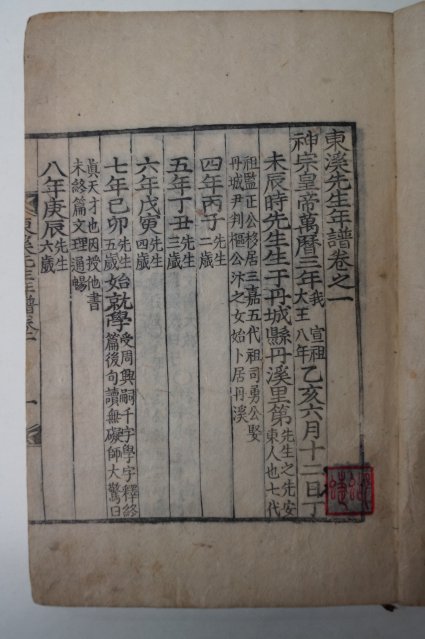 東溪先生年譜卷之一
神宗皇帝萬曆三年我 宣祖大王八年乙亥六月十二日丁
未辰時先生生于丹城縣丹溪里第先生之先安東人也七代
祖監正公移居三嘉五代祖司勇公娶
丹城尹判樞公汴之女始卜居丹溪
四年丙子先生二歲
五年丁丑先生三歲
六年戊寅先生四歲
七年己卯先生五歲始就學受周興嗣千字學字釋終篇後句讀無礙師大驚曰
眞天才也因授他書
未終篇文理通暢
八年庚辰先生六歲
東溪先生年譜卷一
一